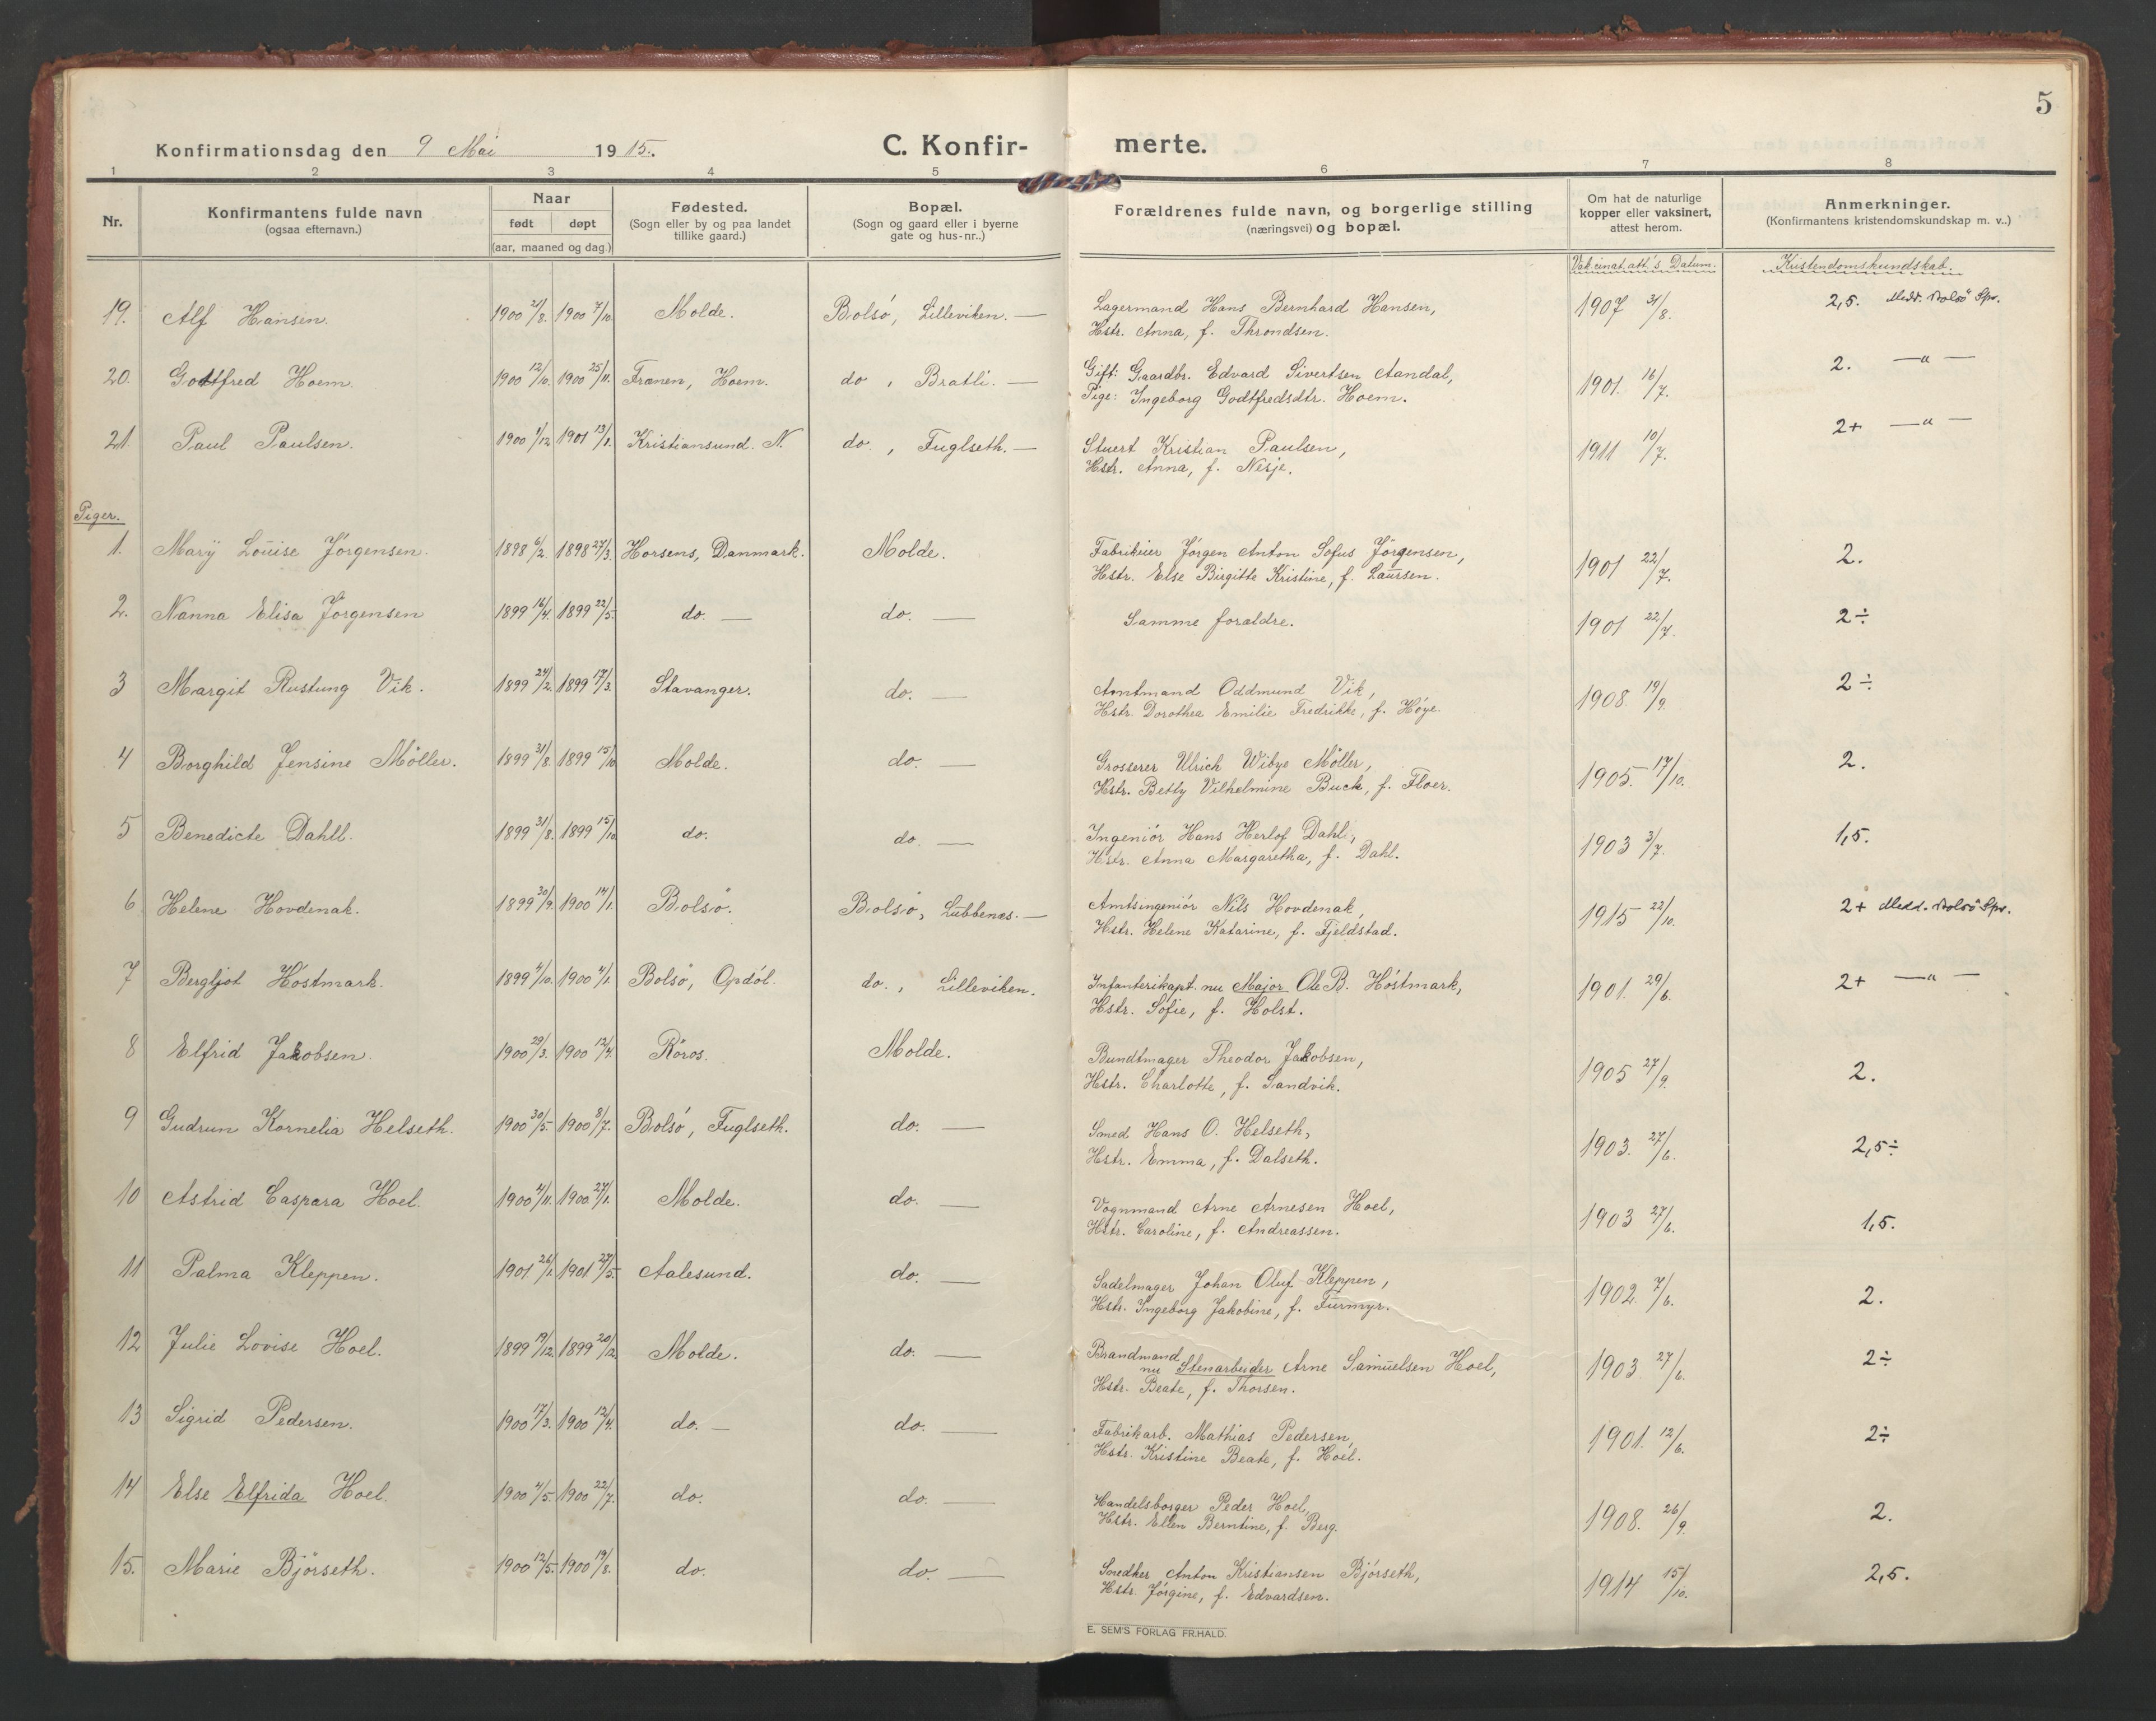 5
Konfirmationsdag den 9 Mai 1915.
C. Konfir- merte.
1 2 3 4 5 6 7 8
Nr.
Konfirmantens fulde navn
(ogsaa efternavn.)
Naar
født døpt
(aar, maaned og dag.)
Fødested.
(Sogn eller by og paa landet
tillike gaard.)
Bopæl.
(Sogn og gaard eller i byerne
gate og hus-nr..)
Forældrenes fulde navn, og borgerlige stilling
(næringsvei) og bopæl.
Om hat de naturlige
kopper eller vaksinert,
attest herom.
Anmerkninger.
(Konfirmantens kristendomskundskap m. v..)
Vakcinat.att's Datum. Kristendomskundskab.
19. Alf Hansen. 1900 21/8. 1900 7/10 Molde. Bolsö, Lilleviken. — Lagermand Hans Bernhard Hansen, 1907 31/8. 2,5. Medd. Bolsö Spr.
Hstr. Anna, f. Throndsen.
20. Godtfred Hoem. 1900 12/10. 1900 25/11. Frænen, Hoem. do, Bratli. — Gift: Gaardbr. Edvard Sivertsen Aandal, 1901. 16/7. 2. —"—
Pige: Ingeborg Godtfredsdtr. Hoem.
21. Paul Paulsen. 1900 1/12 1901 13/1. Kristiansund. N. do., Fuglseth. — Stuert Kristian Paulsen, 1911 10/7. 2+ —"—
Hstr. Anna, f. Nesje.
Piger.
1. Mary Louise Jörgensen. 1898 6/2. 1898 27/3. Horsens, Danmark. Molde. Fabrikeier Jörgen Anton Sofus Jörgensen, 1901 22/7. 2.
Hstr. Else Birgitte Kristine, f. Laursen.
2. Nanna Elisa Jörgensen 1899 16/4. 1899 22/5. do. — do. — Samme forældre. 1901 22/7. 2÷
3 Margit Rustung Vik. 1899 24/2. 1899 17/3. Stavanger. do. — Amtmand Oddmund Vik, 1908. 19/9. 2÷
Hstr. Dorothea Emilie Fredrikke, f. Höye.
4 Borghild Jensine Möller. 1899 31/8. 1899 15/10 Molde. do. — Grosserer Ulrich Wibye Möller, 1905. 17/10. 2.
Hstr. Betty Vilhelmine Buck, f. Floer.
5 Benedicte Dahll. 1899 31/8. 1899 15/10 do. do. — Ingeniör Hans Herlof Dahl, 1903 3/7. 1,5.
Hstr. Anna Margaretha, f. Dahl.
6 Helene Hovdenak. 1899 30/9. 1900 14/1. Bolsö. Bolsö, Lubbenæs. — Amtsingeniör Nils Hovdenak, 1915 22/10. 2+ Medd. Bolsö Spr.
Hstr. Helene Katarine, f. Fjeldstad.
7 Bergljot Höstmark. 1899 4/10. 1900 4/1. Bolsö, Opdöl. do., Lilleviken. Infanterikapt. nu Major Ole B. Höstmark, 1901. 29/6. 2+ —"—
Hstr. Sofie, f. Holst.
8 Elfrid Jakobsen. 1900 29/3. 1900 12/4. Röros. Molde. Bundtmager Theodor Jakobsen, 1905 27/9. 2.
Hstr. Charlotte, f. Sandvik.
9 Gudrun Kornelia Helseth. 1900 30/5. 1900 8/7. Bolsö, Fuglseth. do. — Smed Hans O. Helseth, 1903. 27/6. 2,5÷
Hstr. Emma, f. Dalseth.
10 Astrid Caspara Hoel. 1900 4/11. 1900 27/1. Molde. do. — Vognmand Arne Arnesen Hoel, 1903 27/6. 1,5.
Hstr. Caroline, f. Andreassen.
11 Palma Kleppen. 1901 26/1. 1901 27/5. Aalesund. do. — Sadelmager Johan Oluf Kleppen, 1902. 7/6. 2.
Hstr. Ingeborg Jakobine, f. Furmyr.
12 Julie Lovise Hoel. 1899 19/12. 1899 20/12 Molde. do. — Brandmand
nu Stenarbeider Arne Samuelsen Hoel, 1903 27/6. 2÷
Hstr. Beate, f. Thorsen.
13 Sigrid Pedersen. 1900 17/3. 1900 12/4. do. — do. — Fabrikarb. Mathias Pedersen, 1901. 12/6. 2÷
Hstr. Kristine Beate, f. Hoel.
14 Else Elfrida Hoel. 1900 4/5. 1900 22/7. do. do. — Handelsborger Peder Hoel, 1908. 26/9. 2.
Hstr. Ellen Berntine, f. Berg.
15. Marie Björseth. 1900 12/5. 1900 19/8. do. do. — Snedker Anton Kristiansen Björseth, 1914 15/10. 2,5.
Hstr. Jörgine, f. Edvardsen.
E. SEM'S FORLAG FR.HALD.